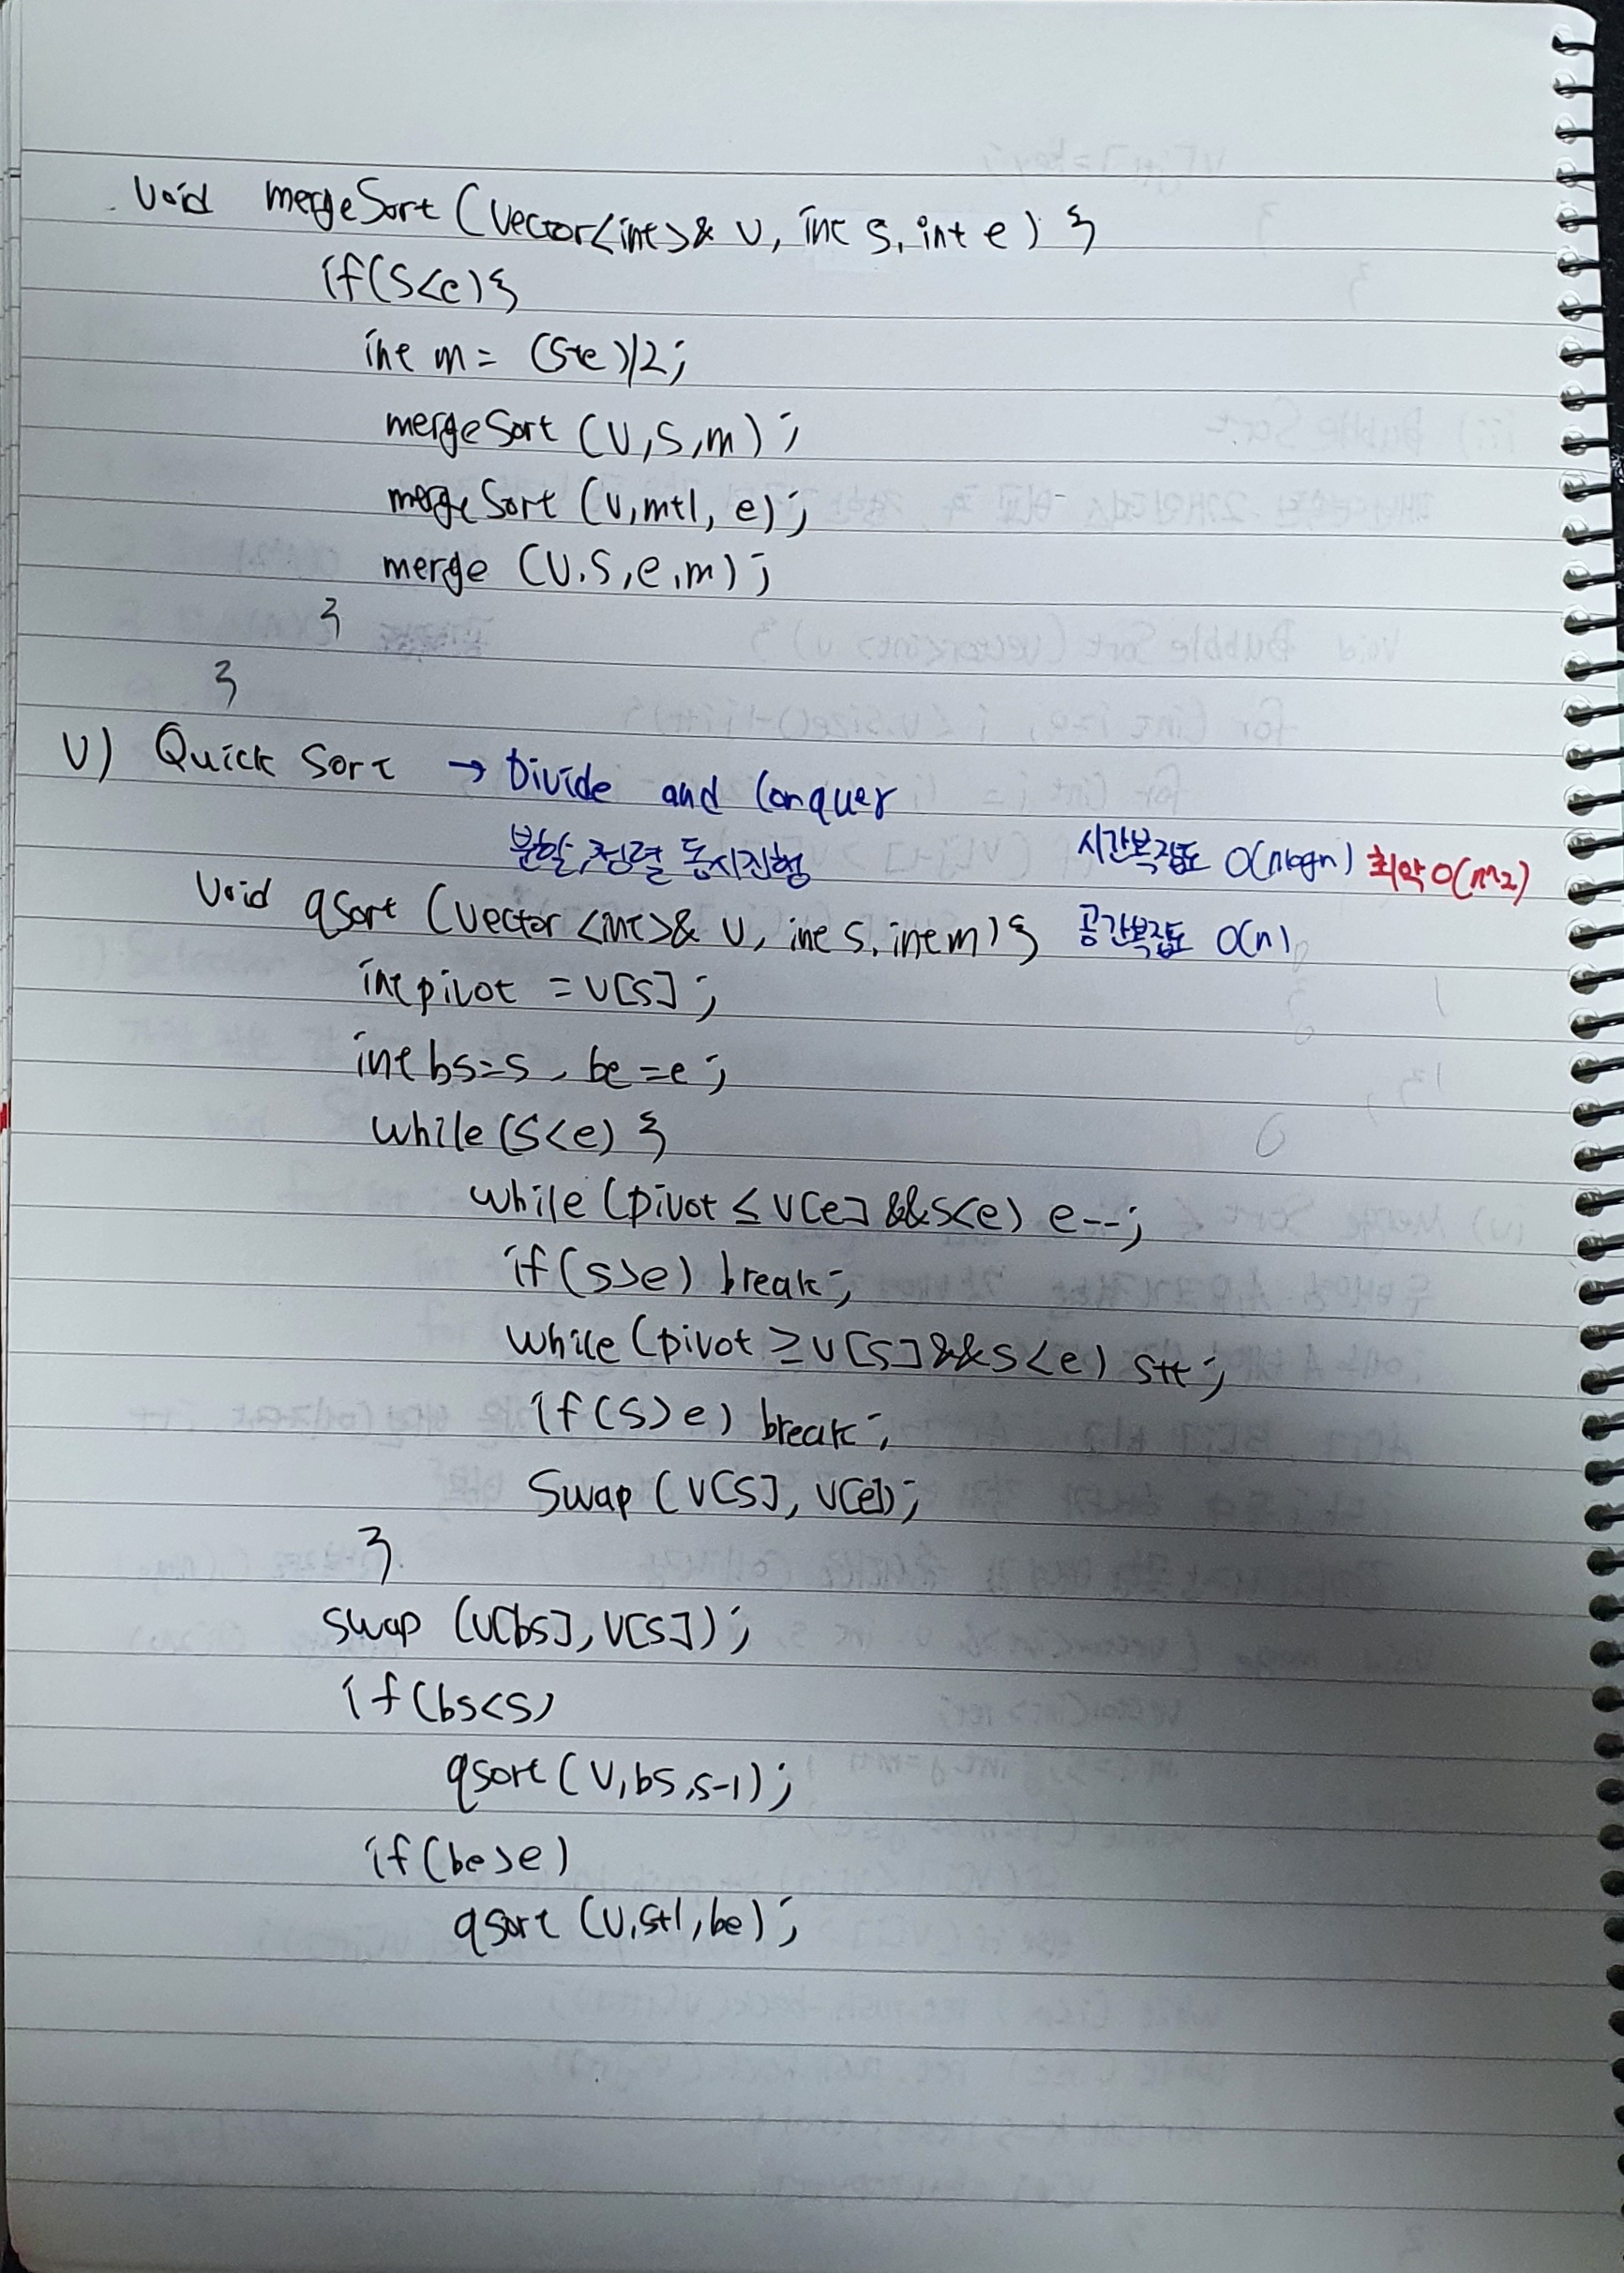 void mergeSort (vector<int>& v, int s, int e) {
if(s<e){
int m = (s+e)/2;
mergeSort (v,s,m);
mergeSort (v,m+1, e);
merge (v,s,e,m);
}
}
V) Quick Sort → Divide and Conquer
분할,정렬 동시진행 시간복잡도 O(nlogn) 최악 O(n^2)
void qsort (vector <int>& v, int s, int m) { 공간복잡도 O(n)
int pivot = v[s];
int bs=s, be=e;
while(s<e) {
while (pivot ≤ v[e] &&s<e) e--;
if(s>e) break;
while (pivot ≥ v[s] &&s<e) s++;
if(s>e) break;
Swap (v[s], v[e]);
}
swap (v[bs], v[s]);
if(bs<s)
qsort (v,bs,s-1);
if(be>e)
qsort (v,s+1,be);